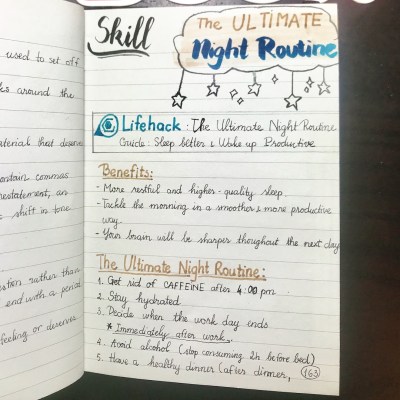 used to set off
around the
material that deserve
contain commas
restatement, an
shift in tone.
rather than
end with a period
feeling or deserves
Skill
The ULTIMATE
Night Routine
Lifehack : The Ultimate Night Routine
Guide : Sleep better & Wake up Productive
Benefits:
- More restful and higher-quality sleep
- Tackle the morning in a smoother & more productive
way.
- Your brain will be sharper thoughout the next day
The Ultimate Night Routine:
1. Get rid of CAFFEINE after 4:00 pm
2. Stay hydrated
3. Decide when the work day ends
* Immediately after work.
4. Avoid alcohol (stop consuming 2h before bed)
5. Have a healthy dinner (after dinner,
163